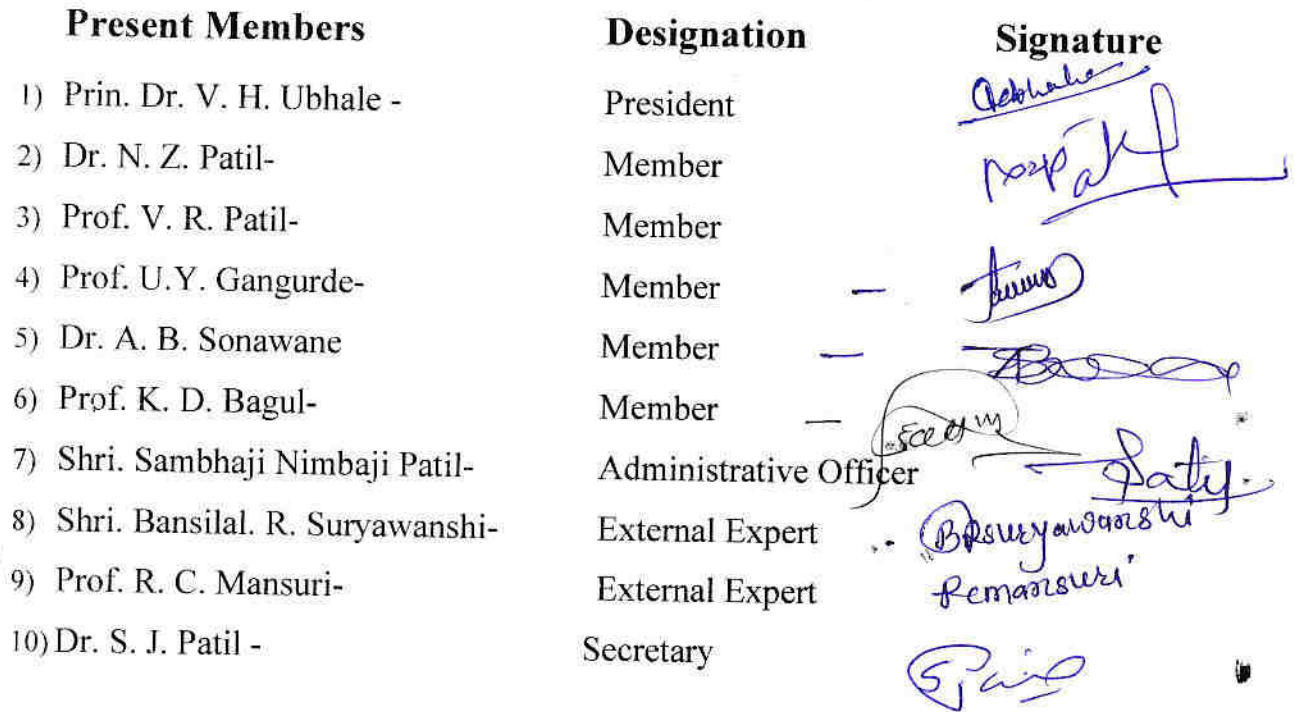 Present Members Designation Signature
1) Prin. Dr. V. H. Ubhale - President
2) Dr. N. Z. Patil- Member
3) Prof. V. R. Patil- Member
4) Prof. U.Y. Gangurde- Member —
5) Dr. A. B. Sonawane Member —
6) Prof. K. D. Bagul- Member —
7) Shri. Sambhaji Nimbaji Patil- Administrative Officer
8) Shri. Bansilal. R. Suryawanshi- External Expert BRSuryawanshi
9) Prof. R. C. Mansuri- External Expert Rcmansuri
10) Dr. S. J. Patil - Secretary